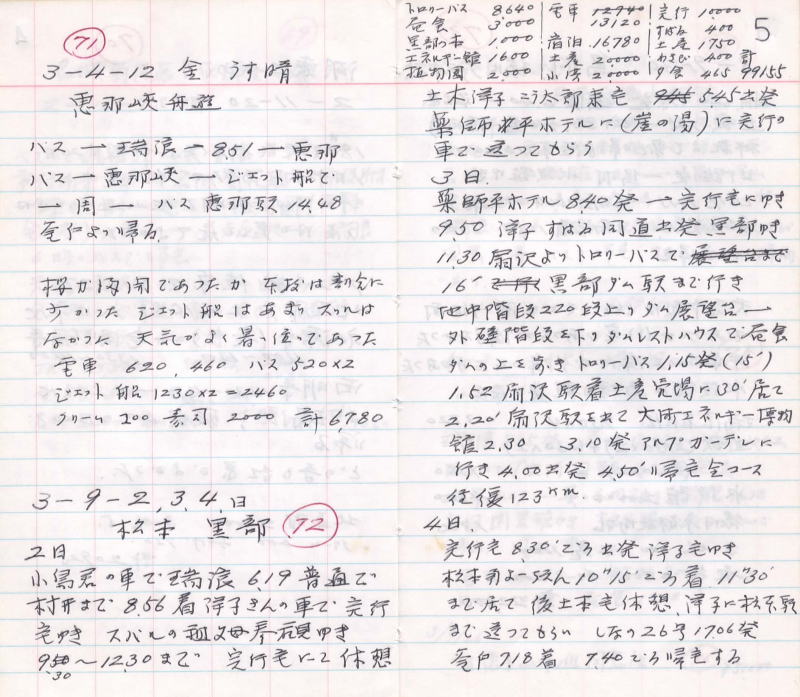 71
3-4-12 金 うす晴
恵那峡舟遊
バス → 瑞浪 → 8.51 → 恵那
バス → 恵那峡 → ジェット船で
→ 一周 → バス 恵那駅 14.48
帰る
桜が満開であったか
少かった ジェット船はあまりスリルは
なかった 天気がよく暑い位であった
電車 620, 460 バス 520×2
ジェット船 1230×2=2460
クリーム 200 寿司 2000 計 6,780
3-9-2, 3, 4, 日
松本 黒部 72
2日
小島君の車で瑞浪 6.19 普通で
村井まで 8.56 着 洋子さんの車で 完行
宅ゆき スバルの祖父母奉観ゆき
9.30~12.30 まで 完行宅にて休憩
5
トロリーバス 8640 電車 12940 完行 10000
昼食 3,000 13120 すばる 400
黒部の本 1,000 宿泊 16,780 土産 1750
エネルギー館 1600 土産 20000 わさび 400 計
植物園 2,000 小湾 20000 夕食 465 99155
土木洋子 太郎来宅 545 出発
薬師平ホテルに(崖の湯)に完行の
車で送ってもらう
3日
薬師平ホテル 8.40 発 → 完行宅にゆき
9.50 洋子 すばる同道出発 黒部ゆき
11.30 扇沢よりトロリーバスで 展望台まで
16' 黒部ダム駅まで行き
地中階段220段上りダム展望台→
外礎階段を下りダムレストハウスで昼食
ダムの上を歩き トロリーバス 1,15発 (15')
1.52 扇沢駅着 土産売場に30'居て
2.20' 扇沢駅を出て 大町エネルギー博物
館 2.30 3.10 発 アルプガーデンに
行き 4.00 出発 4.50' 帰宅 全コース
往復 123 km.
4日
完行宅 8.30' ごろ出発 洋子宅ゆき
10"15' ごろ着 11"30'
まで居て 後土本宅休憩 洋子に松本駅
まで送ってもらい しなの26号 1706発
7.18 着 7.40 ごろ帰宅する